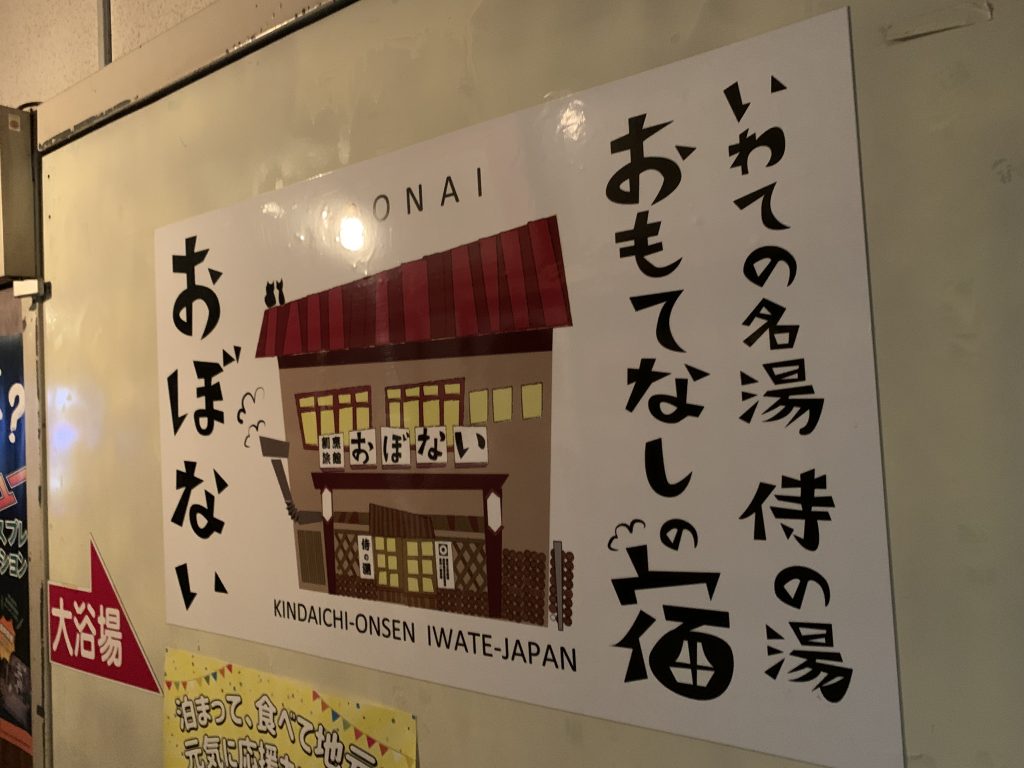 いわての名湯 侍の湯
おもてなしの宿
ONAI
おぼない
おぼない
侍の湯
KINDAICHI-ONSEN IWATE-JAPAN
大浴場
泊まって、食べて地元
元気に応援
?